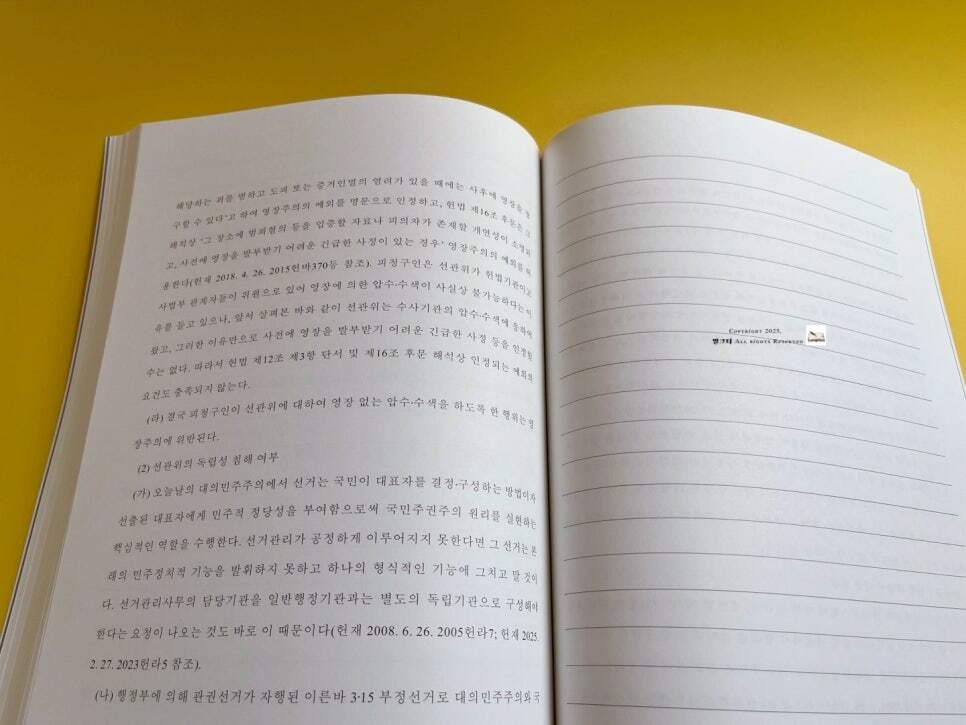 해당하는 죄를 범하고 도피 또는 증거인멸의 염려가 있을 때에는 사후에 영장을 청
구할 수 있다’고 하여 영장주의의 예외를 명문으로 인정하고, 헌법 제16조 후문은 그
해석상 ‘그 장소에 범죄혐의 등을 입증할 자료나 피의자가 존재할 개연성이 소명되
고, 사전에 영장을 발부받기 어려운 긴급한 사정이 있는 경우’ 영장주의의 예외를 허
용한다(헌재 2018. 4. 26. 2015헌바370등 참조). 피청구인은 선관위가 헌법기관이고
사법부 관계자들이 위원으로 있어 영장에 의한 압수·수색이 사실상 불가능하다는 이
유를 들고 있으나, 앞서 살펴본 바와 같이 선관위는 수사기관의 압수·수색에 응하여
왔고, 그러한 이유만으로 사전에 영장을 발부받기 어려운 긴급한 사정 등을 인정할
수는 없다. 따라서 헌법 제12조 제3항 단서 및 제16조 후문 해석상 인정되는 예외의
요건도 충족되지 않는다.
(라) 결국 피청구인이 선관위에 대하여 영장 없는 압수·수색을 하도록 한 행위는 영
장주의에 위반된다.
(2) 선관위의 독립성 침해 여부
(가) 오늘날의 대의민주주의에서 선거는 국민이 대표자를 결정·구성하는 방법이자
선출된 대표자에게 민주적 정당성을 부여함으로써 국민주권주의 원리를 실현하는
핵심적인 역할을 수행한다. 선거관리가 공정하게 이루어지지 못한다면 그 선거는 본
래의 민주정치적 기능을 발휘하지 못하고 하나의 형식적인 기능에 그치고 말 것이
다. 선거관리사무의 담당기관을 일반행정기관과는 별도의 독립기관으로 구성해야
한다는 요청이 나오는 것도 바로 이 때문이다(헌재 2008. 6. 26. 2005헌라7; 헌재 2025.
2. 27. 2023헌라5 참조).
(나) 행정부에 의해 관권선거가 자행된 이른바 3·15 부정선거로 대의민주주의와 국
COPYRIGHT 2025.
ALL RIGHTS RESERVED